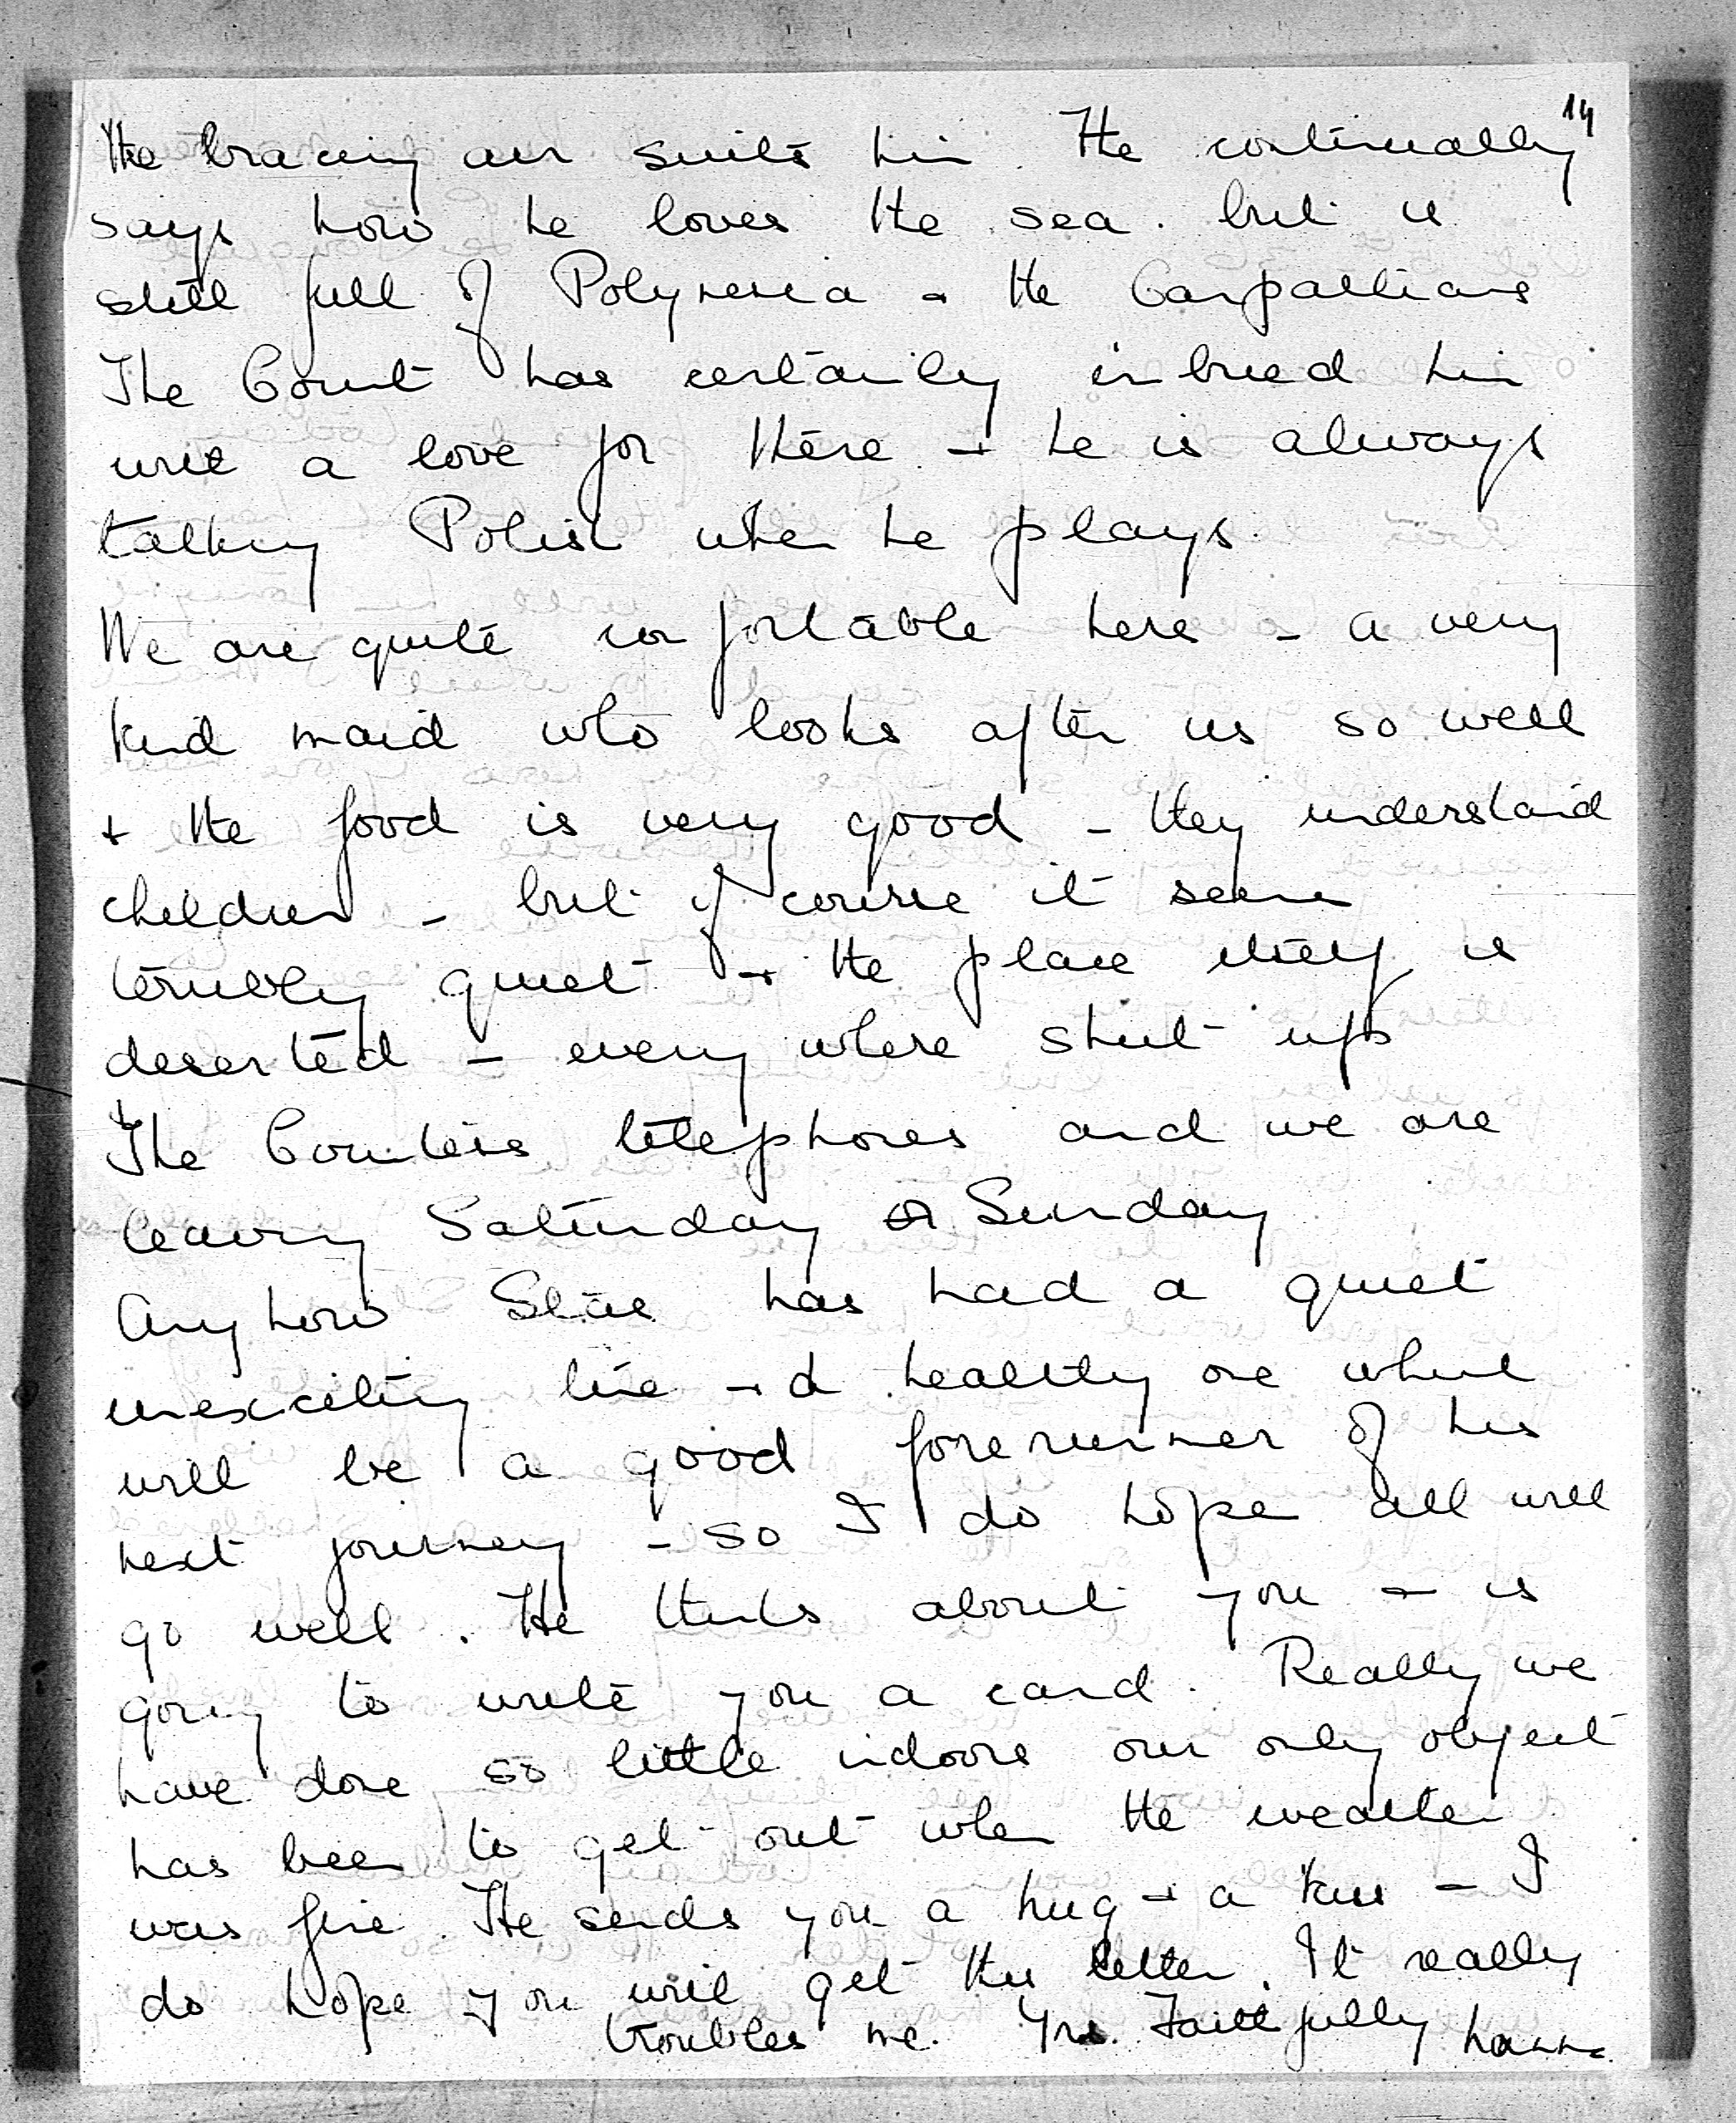 14
the bracing air suits him. He continually
says how he loves the sea. but is
still full of Polynesia + the Carpathians
The Count has certainly inbued him
with a love for there + he is always
talking Polish when he plays.
We are quite comfortable here - a very
kind maid who looks after us so well
+ the food is very good - they understand
children - but of course it seems
terribly quiet + the place itself is
deserted - every where shut up
The Countess telephones and we are
leaving Saturday or Sunday
Anyhow Stas has had a quiet
unexciting time + a healthy one which
will be a good forerunner of his
next journey - so I do hope all will
go well. He thinks about you + is
going to write you a card. Really we
have done so little indoors our only object
has been to get out when the weather
was fine. He sends you a hug + a kiss - I
do hope you will get this letter. It really
troubles me. Yrs. Faithfully